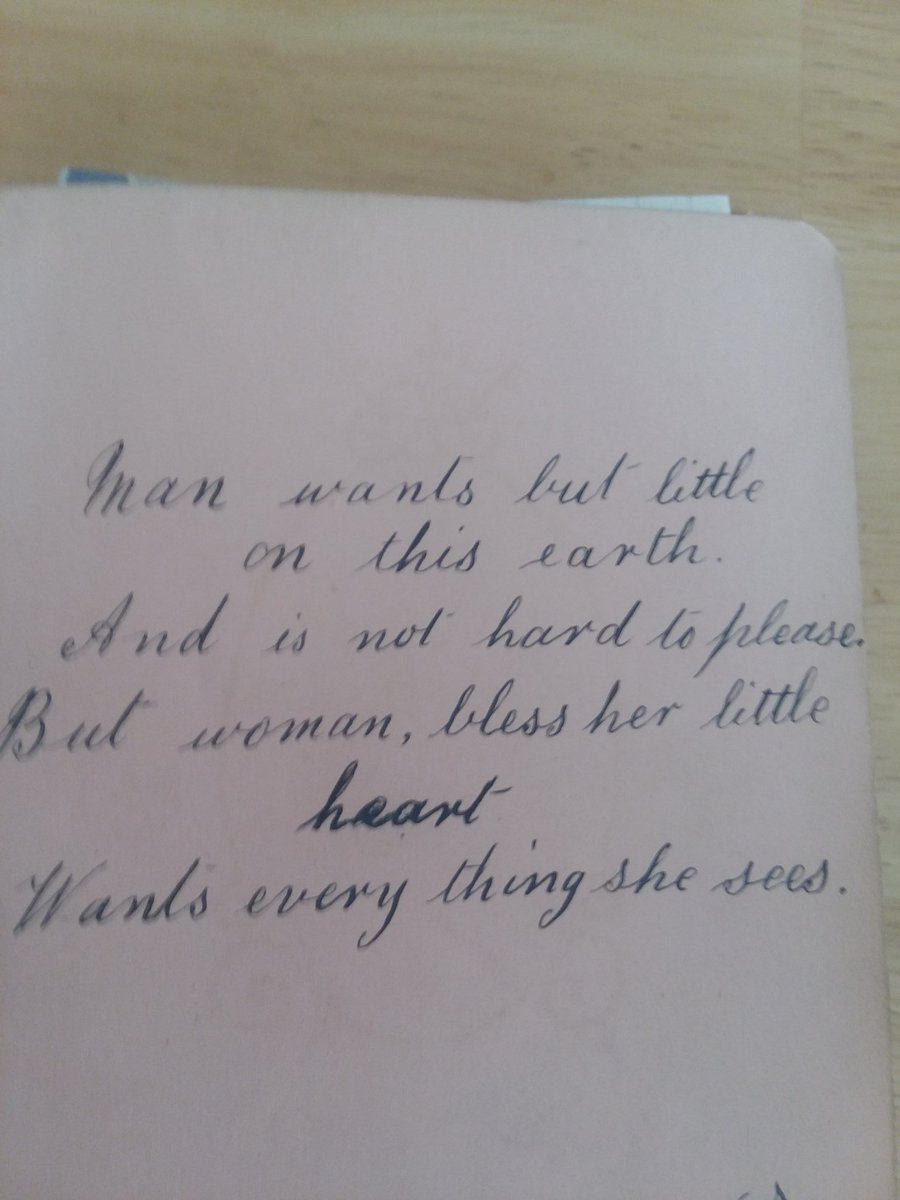 Man wants but little
on this earth.
And is not hard to please.
But woman, bless her little
heart
Wants every thing she sees.